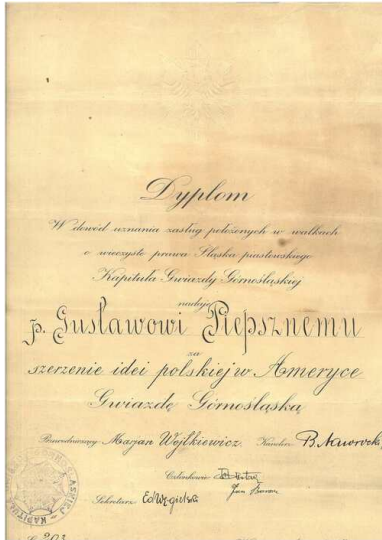 Dyplom
W dowód uznania zasług położonych w walkach
o wieczyste prawa Śląska piastowskiego
Kapituła Gwiazdy Górnośląskiej
nadaje
p. Gustawowi Piepsznemu
za
szerzenie idei polskiej w Ameryce
Gwiazdę Górnośląską
Przewodniczący Marjan Wojtkiewicz. Kanclerz B. Nawrocki
Członkowie
Jan
Sekretarz Ed Węgielski
203